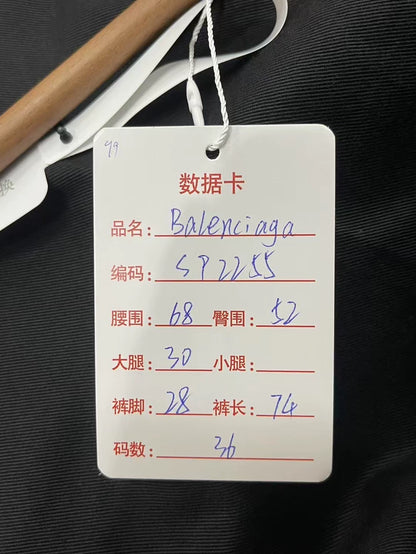 换
99
数据卡
品名：Balenciaga
编码：SP2255
腰围：68 臀围：52
大腿：30 小腿：
裤脚：28 裤长：74
码数：36